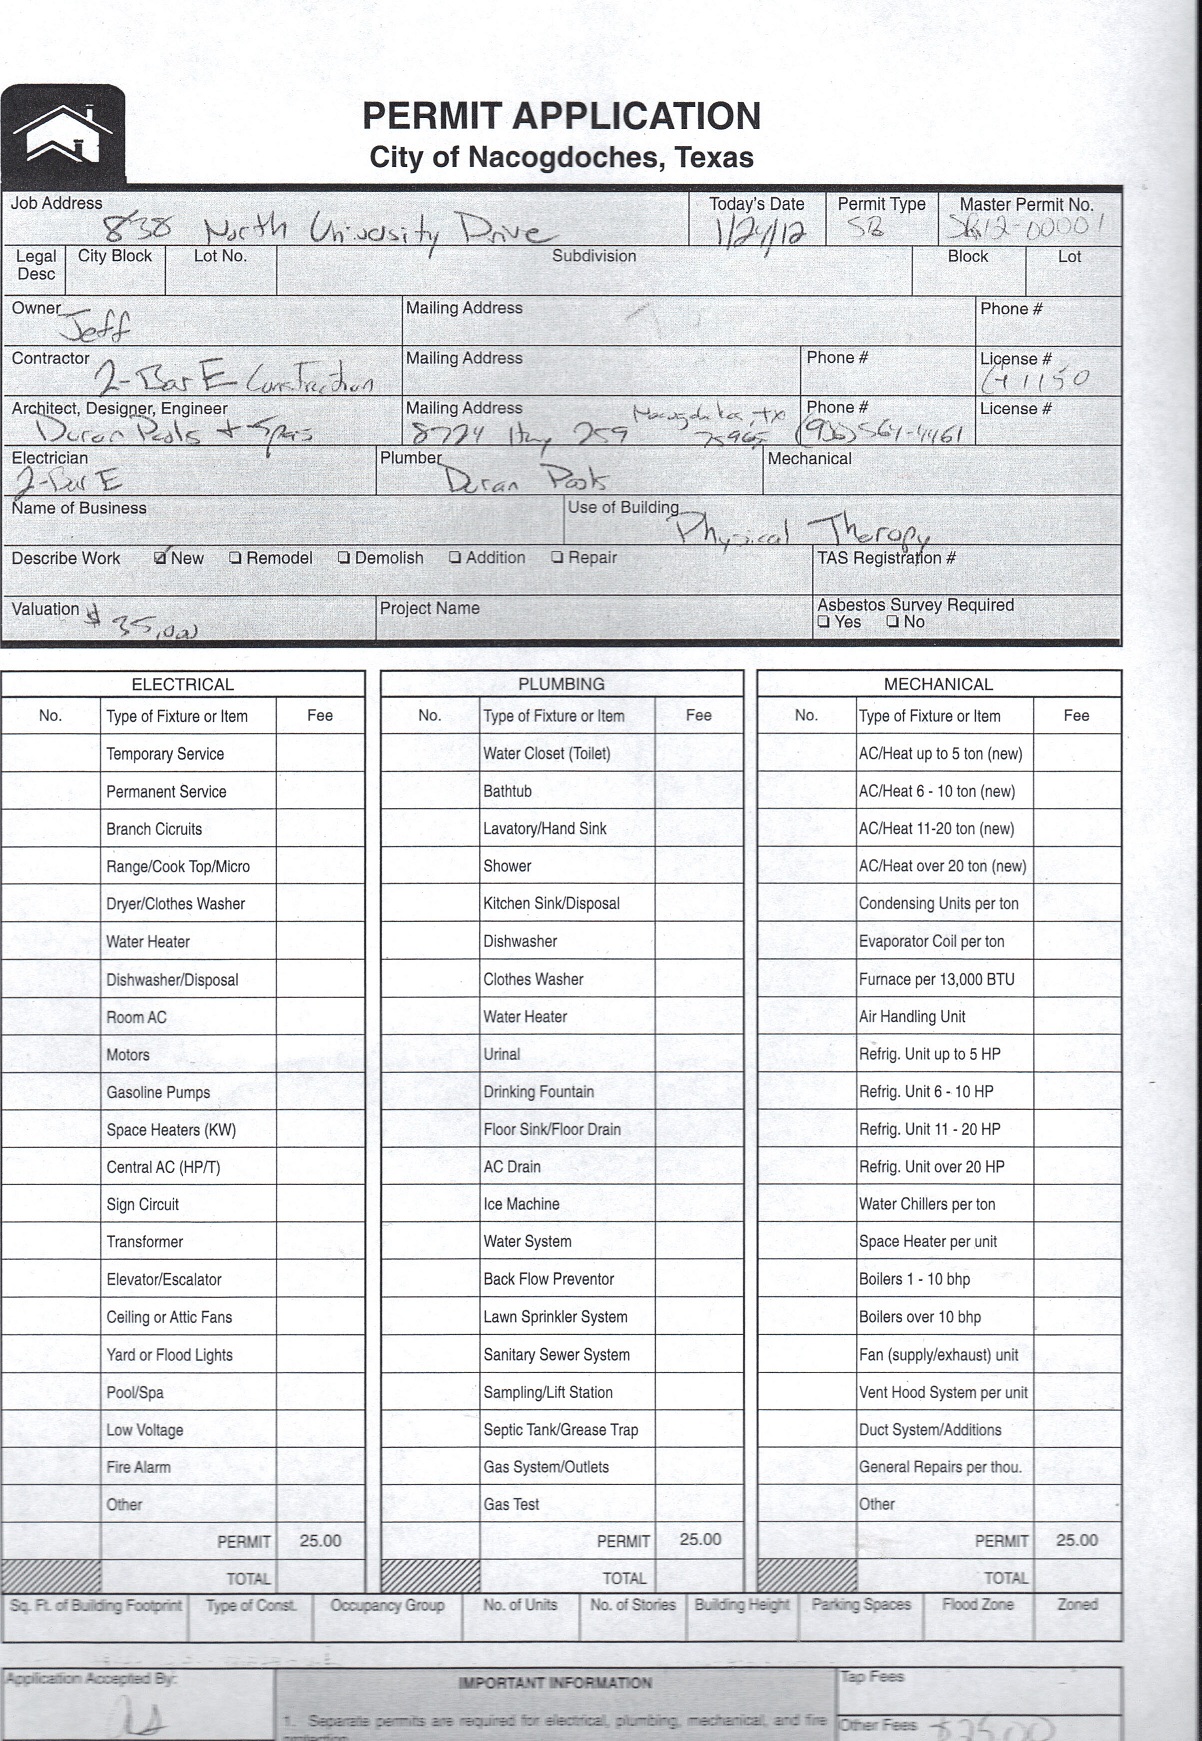 PERMIT APPLICATION
City of Nacogdoches, Texas
Job Address Today's Date Permit Type Master Permit No.
838 North University Drive 1/24/12 SB 12-00001
Legal Desc City Block Lot No. Subdivision Block Lot
Owner Mailing Address Phone #
Jeff
Contractor Mailing Address Phone # License #
2-Bar E Construction 1150
Architect, Designer, Engineer Mailing Address Phone # License #
Duran Pools + Spas 8724 Hwy 259 Nacogdoches, TX 75965 (936) 564-4461
Electrician Plumber Mechanical
2-Bar E Duran Pools
Name of Business Use of Building
Physical Therapy
Describe Work New Remodel Demolish Addition Repair TAS Registration #
Valuation $ 35,000 Project Name Asbestos Survey Required
Yes No
ELECTRICAL PLUMBING MECHANICAL
No. Type of Fixture or Item Fee No. Type of Fixture or Item Fee No. Type of Fixture or Item Fee
Temporary Service Water Closet (Toilet) AC/Heat up to 5 ton (new)
Permanent Service Bathtub AC/Heat 6 - 10 ton (new)
Branch Cicruits Lavatory/Hand Sink AC/Heat 11-20 ton (new)
Range/Cook Top/Micro Shower AC/Heat over 20 ton (new)
Dryer/Clothes Washer Kitchen Sink/Disposal Condensing Units per ton
Water Heater Dishwasher Evaporator Coil per ton
Dishwasher/Disposal Clothes Washer Furnace per 13,000 BTU
Room AC Water Heater Air Handling Unit
Motors Urinal Refrig. Unit up to 5 HP
Gasoline Pumps Drinking Fountain Refrig. Unit 6 - 10 HP
Space Heaters (KW) Floor Sink/Floor Drain Refrig. Unit 11 - 20 HP
Central AC (HP/T) AC Drain Refrig. Unit over 20 HP
Sign Circuit Ice Machine Water Chillers per ton
Transformer Water System Space Heater per unit
Elevator/Escalator Back Flow Preventor Boilers 1 - 10 bhp
Ceiling or Attic Fans Lawn Sprinkler System Boilers over 10 bhp
Yard or Flood Lights Sanitary Sewer System Fan (supply/exhaust) unit
Pool/Spa Sampling/Lift Station Vent Hood System per unit
Low Voltage Septic Tank/Grease Trap Duct System/Additions
Fire Alarm Gas System/Outlets General Repairs per thou.
Other Gas Test Other
PERMIT 25.00 PERMIT 25.00 PERMIT 25.00
TOTAL TOTAL TOTAL
Sq. Ft. of Building Footprint Type of Const. Occupancy Group No. of Units No. of Stories Building Height Parking Spaces Flood Zone Zoned
Application Accepted By: IMPORTANT INFORMATION Tap Fees
1. Separate permits are required for electrical, plumbing, mechanical, and fire Other Fees
protection.